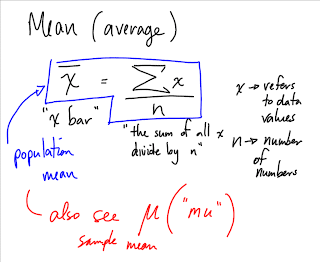 Mean (average)
x̄ = Σx / n
"x bar"
"the sum of all x
divide by n"
x → refers
to data
values
n → number
of
numbers
population
mean
also see μ ("mu")
sample mean